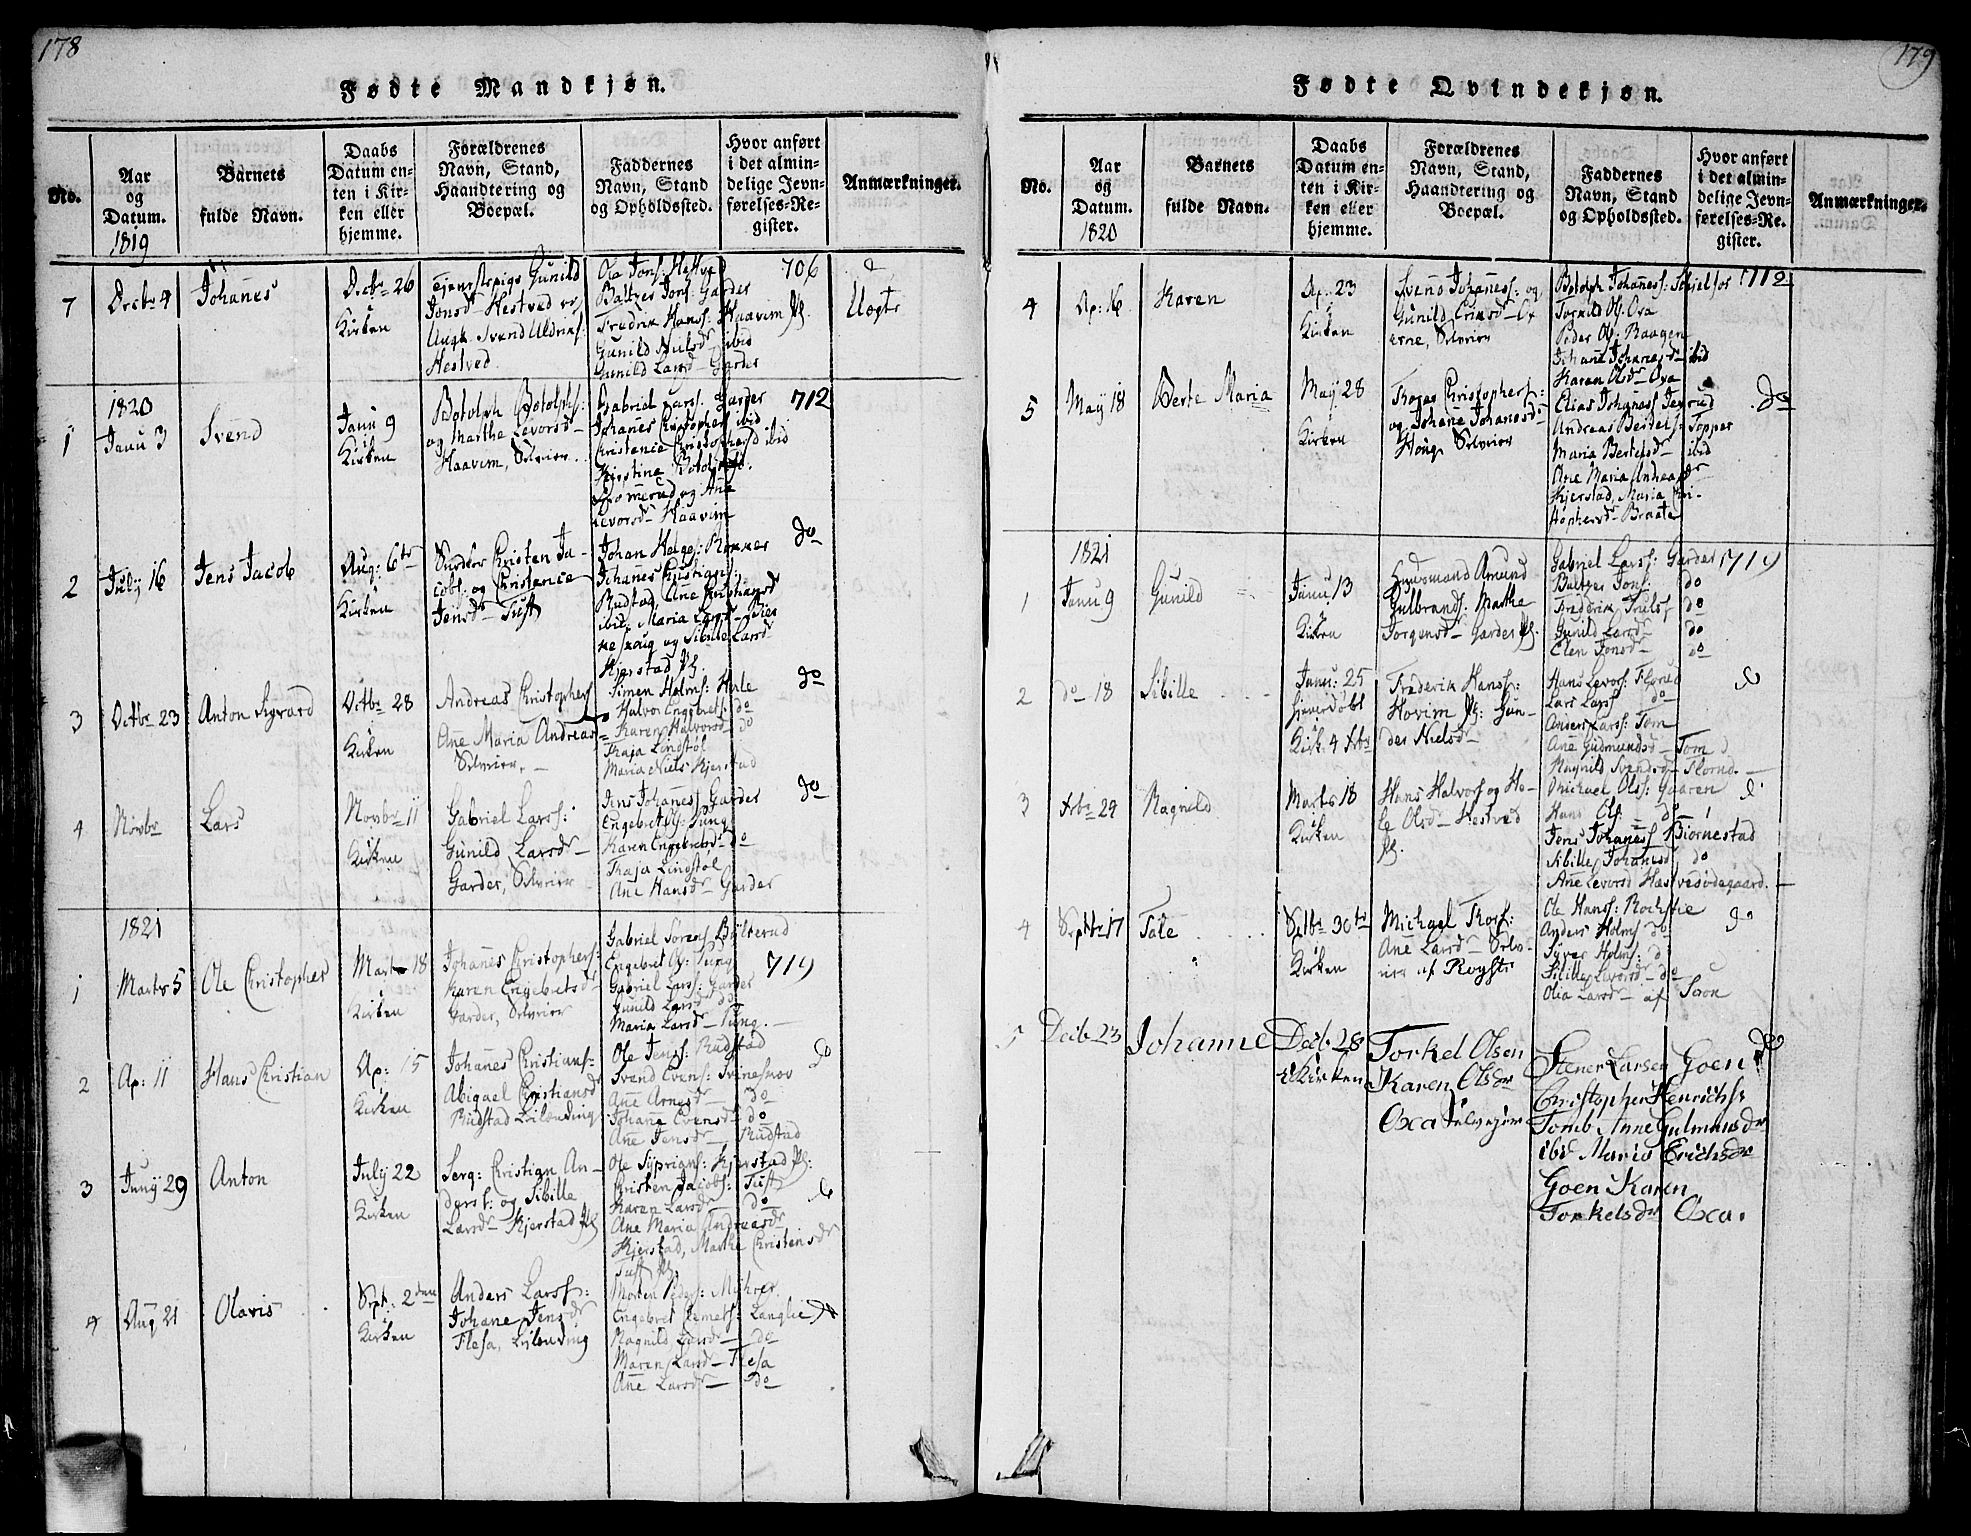 178
Fødte Mandkjøn.
No.
Aar
og
Datum.
1819
Barnets
fulde Navn.
Daabs
Datum en-
ten i Kir-
ken eller
hjemme.
Forældrenes
Navn, Stand,
Haandtering og
Boepæl.
Faddernes
Navn, Stand
og Opholdssted.
Hvor anført
i det almin-
delige Jevn-
førelses-Re-
gister.
Anmærkninger.
7
Decbr 4
Johanes
Decbr 26
Kirken
Tjenestepige Gunild
Jonsd Hestved
Ungk Svend Uldriks:
Hestved
Ole Jons: Hestved
Baltzer Jons: Garder
Fredrik Hanss: Haavim Pl.
Gunild Nielsdr ibid
Gunild Larsd Garder
706
Uegte
1820
1
Janu 3
Svend
Janu 9
Kirken
Botolph Botolphs:
og Marthe Levorsd
Haavim, Selveier
Gabriel Larss: Garder
Johanes Christophers ibid
Christence Christophersd ibid
Kjerstine Botolphsd.
og Ane
Levorsd Haavim
712
2
July 16
Jens Jacob
Aug: 6te
Kirken
Christen Ja-
cobs: og Christence
Jensd Tuft
Johan Helges:
Johanes Christians
Rudstad, Ane Christiansd
ibid, Maria Larsd
og Sibille Larsd
Kjerstad Pl.
do
3
Octbr 23
Anton Sigvard
Octbr 28
Kirken
Andreas Christophers
Ane Maria Andreas
Selveier
Simen Holms:
Halvor Engebrets: do
Karen Halvorsd do
Thaja Lindstøl
Maria Niels Kjerstad
do
4
Novbr
Lars
Novbr 11
Kirken
Gabriel Larss:
Gunild Larsd
Garder, Selveier
Jens Johaness Garder
Engebret Ols: Pung
Karen Engebretsd do
Thaja Lindstøl
Ane Hansd Garder
do
1821
1
Marts 5
Ole Christopher
Marts 18
Kirken
Johanes Christophers:
Karen Engebretsd
Garder, Selveier
Gabriel Sørens Bylterud
Engebret Ols: Pung
Gabriel Larss: Garder
Gunild Larsd do
Maria Larsd Pung.
719
2
Ap: 11
Hans Christian
Ap: 15
Kirken
Johanes Christians
Abigael Christiansd
Rudstad Leilænding
Ole Jenss: Rudstad
Svend Evens:
Ane Arnesd do
Johane Evensd do
Ane Jensd Rudstad
do
3
Juny 29
Anton
July 22
Kirken
Serg: Christian An-
ders: og Sibille
Larsd Kjerstad Pl
Ole Syprians: Kjerstad Pl:
Christen Jacobs: Tuft
Karen Larsd do
Ane Maria Andreasdr
Kjerstad, Marthe Christensdr
Tuft Pl.
do
4
Aug 21
Olavis
Sept: 2den
Kirken
Anders Larss:
Johane Jensd
Flesa, Leilænding
Morten Peders:
Engebret Clemets: Langlie
Ragnild Larsd do
Maren Larsd Flesa
Ane Larsd do
do
179
Fødte Qvindekjøn.
No.
Aar
og
Datum.
1820
Barnets
fulde Navn.
Daabs
Datum en-
ten i Kir-
ken eller
hjemme.
Forældrenes
Navn, Stand,
Haandtering og
Boepæl.
Faddernes
Navn, Stand
og Opholdssted.
Hvor anført
i det almin-
delige Jevn-
førelses-Re-
gister.
Anmærkninger.
4
Ap: 16
Karen
Ap: 23
Kirken
Svend Johaness: og
Gunild Eriksd Ox
erne, Selveier
Botolph Johaness:
Torkild Ols. Oxa
Peder Ols: Raagen
Johane Johanesd ibid
Karen Olsdr Oxa
712
5
May 18
Berte Maria
May 28
Kirken
Christophers:
og Johane Johanesd
Houg Selveier
Elias Johaness
Andreas Bertels: Topper
Maria Bertelsd ibid
Ane Maria Andreasdr
Kjerstad, Maria Chri-
stophersd Braate
do
1821
1
Janu 9
Gunild
Janu 13
Kirken
Huusmand Amund
Gulbrands: Marthe
Jorgensd Garder Pl.
Gabriel Larss: Garder
Baltzer Jons: do
Frederik Trulss do
Gunild Larsd do
Elen Jonsd do
719
2
do 18
Sibille
Janu: 25
hjemmedøbt
Kirk: 4
Frederik Hanss:
Hovim Pl: Gun-
der Nielsd
Hans Levors: Florud
Lars Larss do
Anders Larss: Tom
Ane Gudmundsd Tom
Ragnild Svendsd Florud.
do
3
Febr 24
Ragnild
Marts 18
Kirken
Hans Halvors og He-
le Olsd Hestved
Pl.
Michael Ols: Gaaren
Hans Ols: do
Jens Johaness Biørnestad
Sibille Johanesd do
Ane Levorsd Hestvedødegaard.
do
4
Septbr 17
Tale
Septbr 30te
Kirken
Michael Thors:
Ane Larsd Selv-
eier af
Ole Hanss:
Anders Holms do
Syver Holms: do
Sibille Levorsd do
Olia Larsd af Soon
do
5
Decb 23
Johanne
Decb 28
i Kirken
Torkel Olsen
Karen Olsdr
Oxa Selvejer
Stener Larsen Goen
Christopher Henrichss
Tomb Anne Gulmunsdr
ibd Maria Erichsdr
Goen Karen
Torkelsdr Oxa.
do